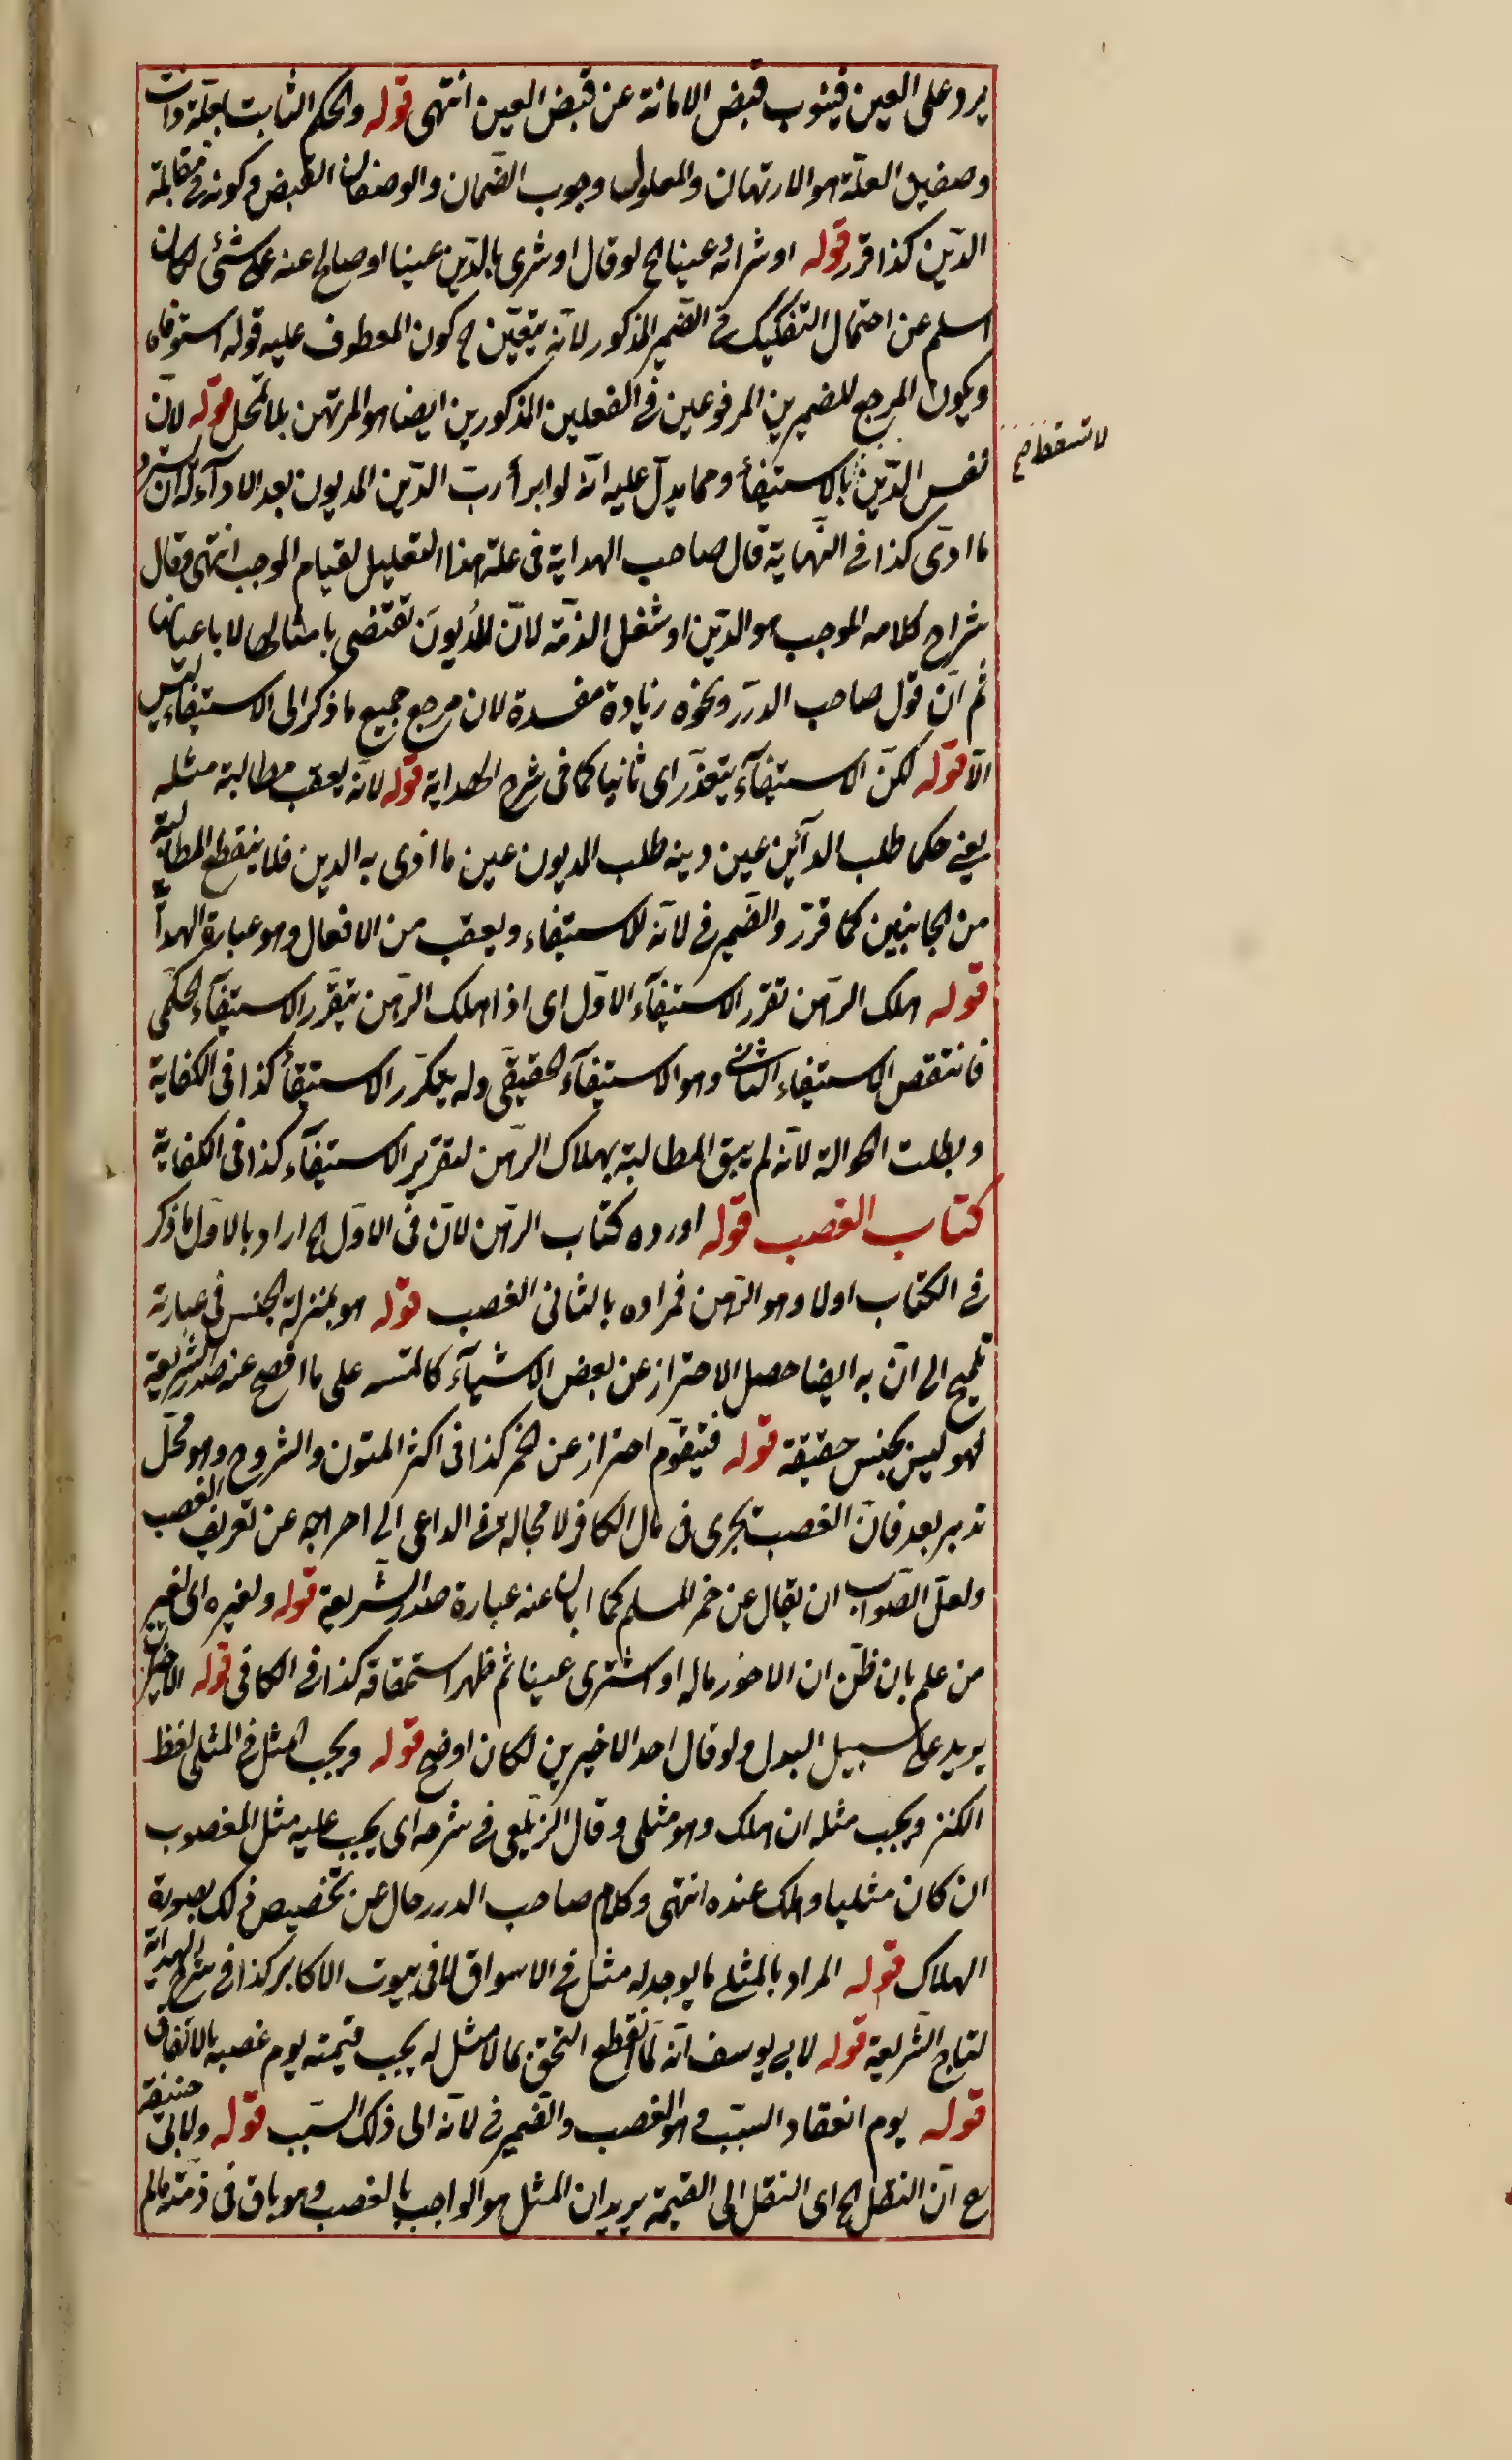 يرد على العين فينوب قبض الامانة عن قبض العين انتهى قوله والحكم الثابت بعلة ذات
وصفين العلة هو الارتهان والمعلول وجوب الضمان والوصفان القبض وكونه في مقابلة
الدين كذا قرر قوله او شرائه عينا الخ لو قال او شرى بالدين عينا او صالح عنه على شئ لكان
اسلم عن احتمال التفكيك في الضمير المذكور لانه يتعين ح كون المعطوف عليه قوله استوفاه
ويكون المرجع للضميرين المرفوعين في الفعلين المذكورين ايضا هو المرتهن بلا تمحل قوله لان
نفس الدين بالاستيفاء ومما يدل عليه انه لو ابرأ رب الدين المديون بعد الاداء له ان يسترد
لا تسقط صح
ما ادى كذا في النهاية قال صاحب الهداية في علة هذا التعليل لقيام الموجب انتهى وقال
شراح كلامه الموجب هو الدين او شغل الذمة لان الديون تقتضى بامثالها لا باعيانها
ثم ان قول صاحب الدرر ونحوه زيادة مفسدة لان مرجع جميع ما ذكر الى الاستيفاء ليس
الا قوله لكن الاستيفاء يتعذر اى ثانيا كما في شرح الهداية قوله لانه يعقب مطالبة مثله
يعني حكما طلب الدائن عين دينه طلب المديون عين ما ادى به الدين فلا ينقطع المطالبة
من الجانبين كما قرر والضمير في لانه للاستيفاء ويعقب من الافعال وهو عبارة الهداية
قوله هلك الرهن تقرر الاستيفاء الاول اى اذا هلك الرهن يتقرر الاستيفاء الحكمى
فانتقض الاستيفاء الثاني وهو الاستيفاء الحقيقى ولم يتكرر الاستيفاء كذا في الكفاية
وبطلت الحوالة لانه لم يبق المطالبة بهلاك الرهن لتقرير الاستيفاء كذا في الكفاية
كتاب الغصب قوله اورده كتاب الرهن لان في الاول الخ اراد بالاول ما ذكر
في الكتاب اولا وهو الرهن فمراده بالثانى الغصب قوله هو بمنزلة الجنس في عبارته
تلميح الى ان به ايضا حصل الاحتراز عن بعض الاشياء كالميتة على ما افصح عنه صدر الشريعة
فهو ليس بجنس حقيقة قوله متقوم احتراز عن الخمر كذا في اكثر المتون والشروح وهو محل
تدبر بعد فان الغصب يجرى في مال الكافر لا محالة فما الداعى الى اخراجه عن تعريف الغصب
ولعل الصواب ان يقال عن خمر المسلم كما ابان عنه عبارة صدر الشريعة قوله ولغيره اى لغير
من علم بان ظن ان الماخوذ ماله او اشترى عينا ثم ظهر استحقاقه كذا في الكافى قوله الاخيرين
يريد على سبيل البدل ولو قال احد الاخيرين لكان اوضح قوله ويجب المثل في المثلى لفظ
الكنز ويجب مثله ان هلك وهو مثلى وقال الزيلعى في شرحه اى يجب عليه مثل المغصوب
ان كان مثليا وهلك عنده انتهى وكلام صاحب الدرر خال عن تخصيص ذلك بصورة
الهلاك قوله المراد بالمثلى ما يوجد له مثل في الاسواق لا في بيوت الاكابر كذا في شرح الهداية
لتاج الشريعة قوله لابي يوسف انه لما انقطع التحق بما لا مثل له يجب قيمته يوم غصبه بالاتفاق
قوله يوم انعقاد السبب وهو الغصب والضمير في لانه الى ذلك السبب قوله ولابى حنيفة
رح ان النقل الخ اى النقل الى القيمة يريد ان المثل هو الواجب بالغصب وهو باق في ذمته ما لم